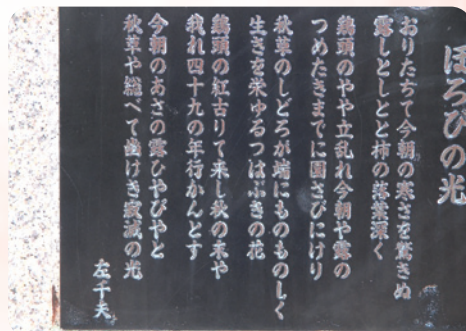 ほろびの光
おりたちて今朝の寒さを驚きぬ
露しとしとと柿の落葉深く
鶏頭のやや立乱れ今朝や露の
つめたきまでに園さびにけり
秋草のしどろが端にものものしく
生きを栄ゆるつはぶきの花
鶏頭の紅古りて来し秋の末や
我れ四十九の年行かんとす
今朝のあさの露ひやびやと
秋草や総べて幽けき寂滅の光
左千夫